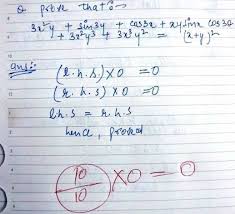 Q prove that:-
3x²y + sin3y + cos3x + xy sinx cos3θ
+ 3x²y³ + 3x³y² = (x+y)²
Ans:-
(l.h.s) × 0 = 0
(r.h.s) × 0 = 0
l.h.s = r.h.s
hence, proved
10/10 × 0 = 0